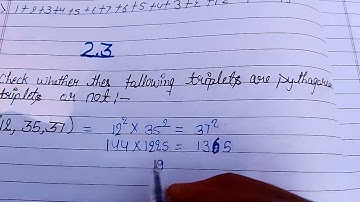 1+2+3+4+5+6+7+6+5+4+3+2+1
2.3
Check whether the following triplets are pythagorean
triplets or not :-
(12, 35, 37) = 12² × 35² = 37²
144 × 1225 = 1365
19